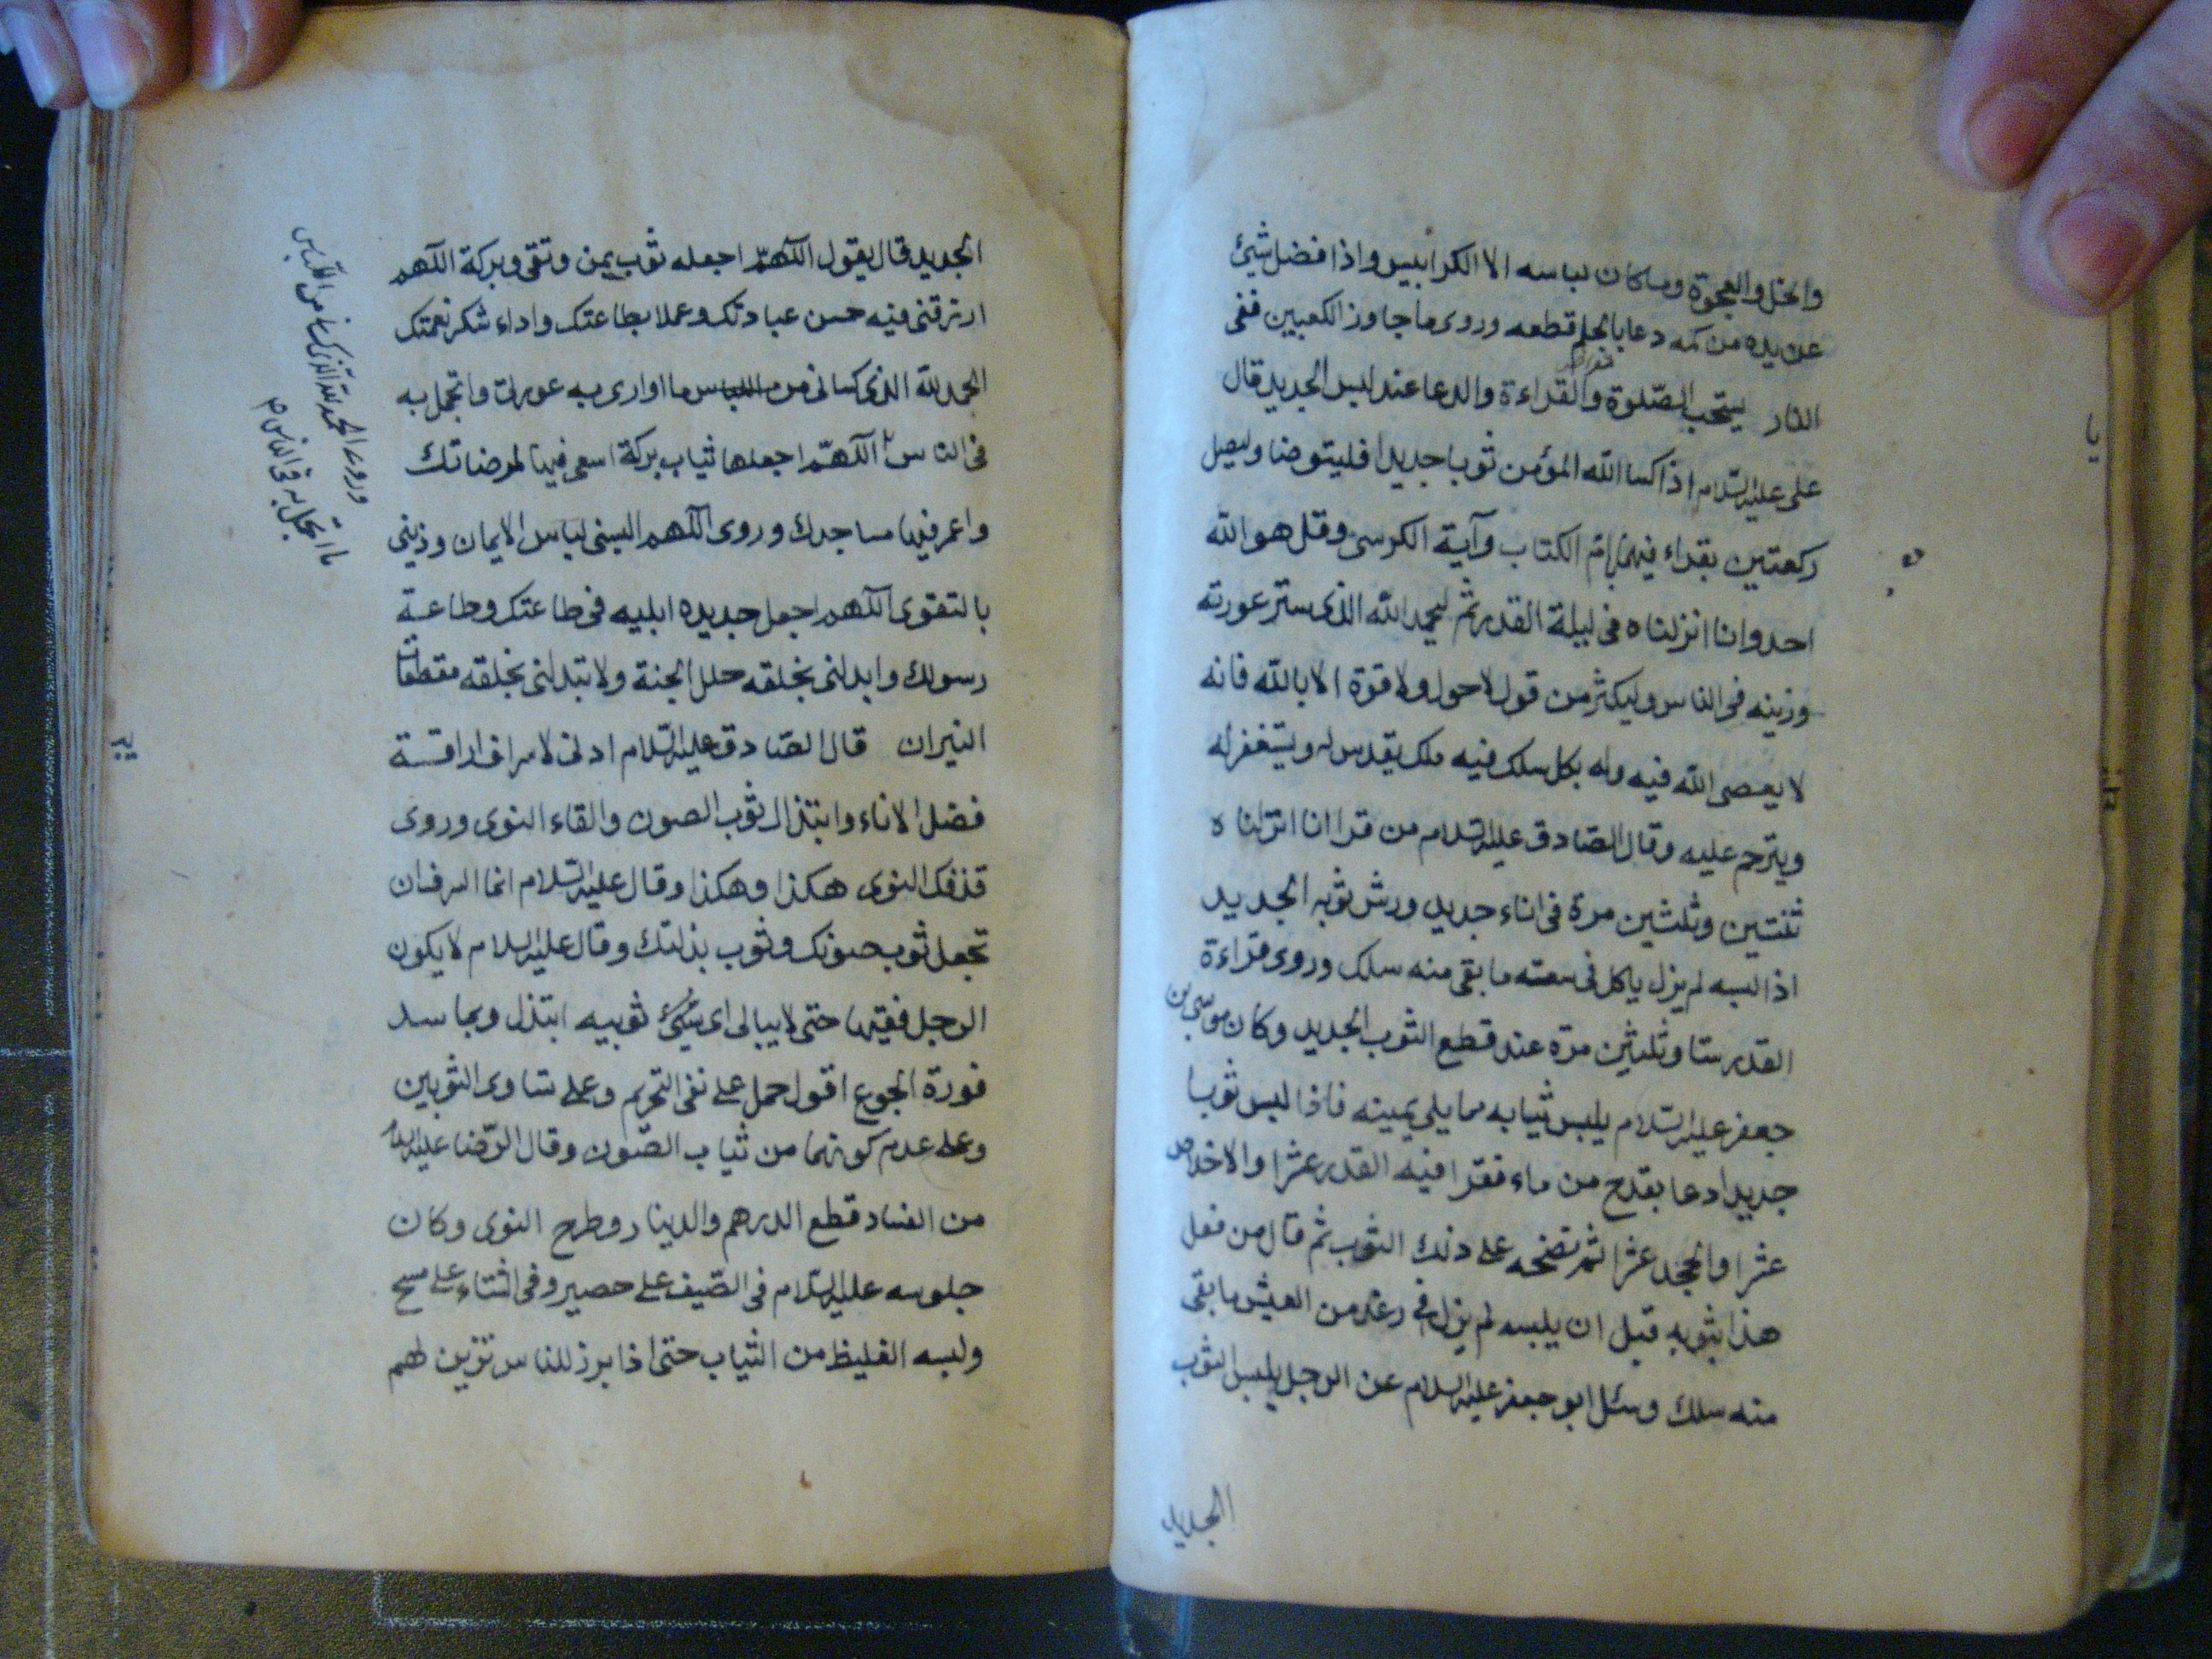 والخل والعجوة وما كان لباسه الا الكرابيس واذا فضل شيئ
عن يده من كمه دعا بالجلم قطعه وروى ما جاوز الكعبين ففى
النار يستحب الصلوة والقراءة والدعا عند لبس الجديد قال
على عليه السلام اذا كسا الله المؤمن ثوبا جديدا فليتوضا وليصل
ركعتين يقراء فيهما بام الكتاب وآية الكرسى وقل هو الله
احد وانا انزلناه فى ليلة القدر ثم ليحمد الله الذى ستر عورته
وزينه فى الناس وليكثر من قول لا حول ولا قوة الا بالله فانه
لا يعصى الله فيه وله بكل سلك فيه ملك يقدس له ويستغفر له
ويترحم عليه وقال الصادق عليه السلام من قرا انا انزلناه
ثنتين وثلثين مرة فى اناء جديد ورش ثوبه الجديد
اذا لبسه لم يزل ياكل فى سعته ما بقى منه سلك وروى قراءة
القدر ستا وثلثين مرة عند قطع الثوب الجديد وكان موسى بن
جعفر عليه السلام يلبس ثيابه مما يلى يمينه فاذا لبس ثوبا
جديدا دعا بقدح من ماء فقرا فيه القدر عشرا والاخلاص
عشرا والجحد عشرا ثم نضحه على ذلك الثوب ثم قال من فعل
هذا بثوبه قبل ان يلبسه لم يزل فى رغد من العيش ما بقى
منه سلك وسئل ابو جعفر عليه السلام عن الرجل يلبس الثوب
الجديد
الجديد قال يقول اللهم اجعله ثوب يمن وتقى وبركة اللهم
ارزقنى فيه حسن عبادتك وعملا بطاعتك واداء شكر نعمتك
الحمد لله الذى كسانى من اللباس ما اوارى به عورتى واتجمل به
فى الناس اللهم اجعلها ثياب بركة اسعى فيها لمرضاتك
واعمر فيها مساجدك وروى اللهم البسنى لباس الايمان وزينى
بالتقوى اللهم اجعل جديده ابليه فى طاعتك وطاعة
رسولك وابدلنى بخلقه حلل الجنة ولا تبدلنى بخلقه مقطعات
النيران قال الصادق عليه السلام ادنى الاسراف اراقة
فضل الاناء وابتذال ثوب الصون والقاء النوى وروى
قذفك النوى هكذا وهكذا وقال عليه السلام انما السرف ان
تجعل ثوب صونك ثوب بذلتك وقال عليه السلام لا يكون
الرجل فقيها حتى لا يبالى اى ثوبيه ابتذل وبما سد
فورة الجوع اقول حمل على نفى التحريم وعلى تساوى الثوبين
وعلى عدم كونهما من ثياب الصون وقال الرضا عليه السلام
من الفساد قطع الدرهم والدينار وطرح النوى وكان
جلوسه عليه السلام فى الصيف على حصير وفى الشتاء على مسح
ولبسه الغليظ من الثياب حتى اذا برز للناس تزين لهم
وروى الحمد لله الذى كسانى من اللباس
ما اتجمل به فى الناس